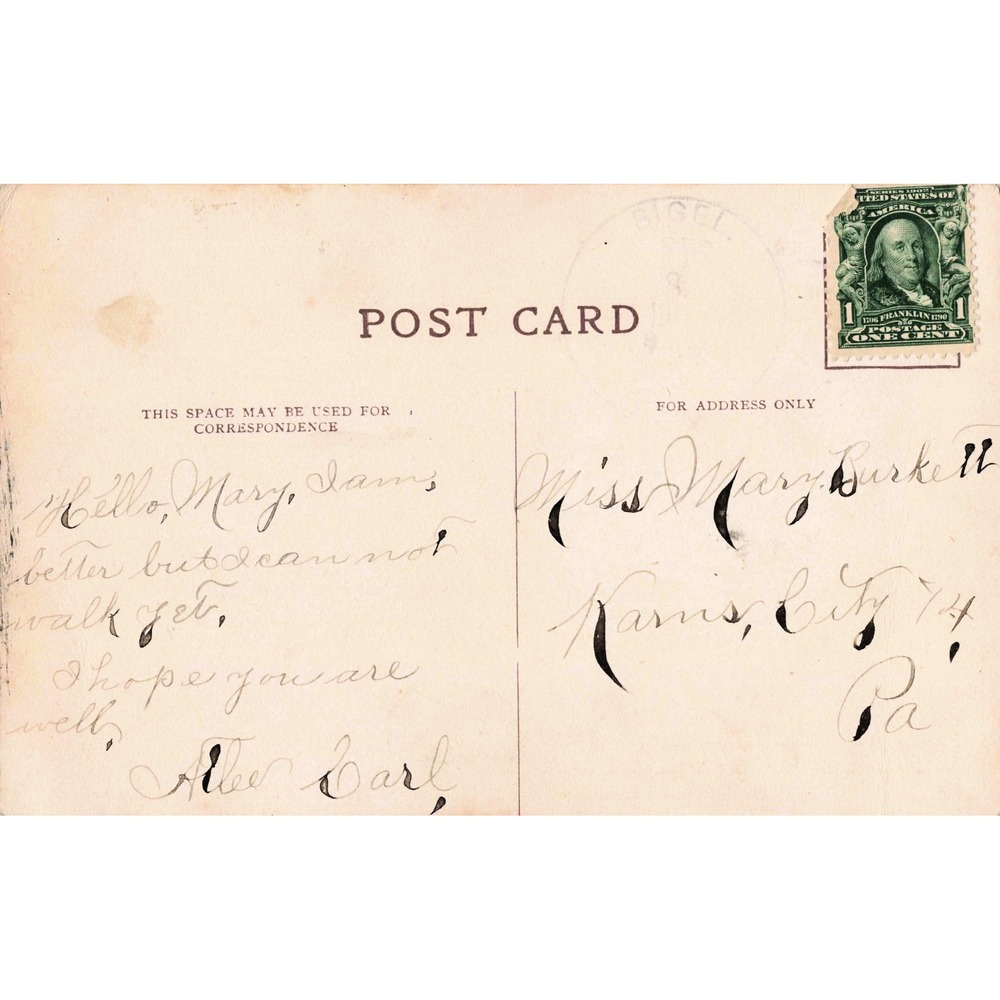 SIGEL,
SERIES 1902
UNITED STATES OF
AMERICA
1 1
1706 FRANKLIN 1790
POSTAGE
ONE CENT
POST CARD
THIS SPACE MAY BE USED FOR
CORRESPONDENCE
Hello, Mary, I am,
better but I can not
walk yet,
I hope you are
well,
Earl,
FOR ADDRESS ONLY
Miss Mary Burkett
Karns, City
Pa